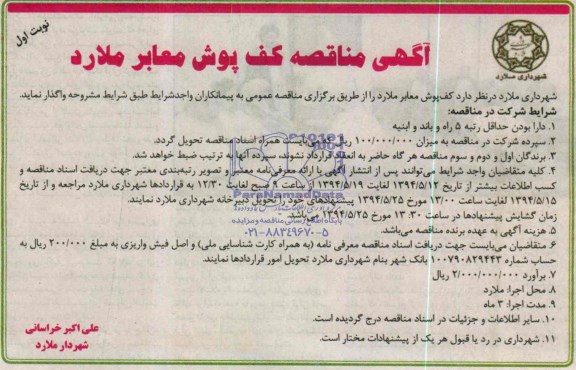 نوبت اول
شهرداری ملارد
آگهی مناقصه کف پوش معابر ملارد
شهرداری ملارد درنظر دارد کف‌پوش معابر ملارد را از طریق برگزاری مناقصه عمومی به پیمانکاران واجدشرایط طبق شرایط مشروحه واگذار نماید.
شرایط شرکت در مناقصه:
۱. دارا بودن حداقل رتبه ۵ راه و باند و ابنیه
۲. سپرده شرکت در مناقصه به میزان ۱۰۰/۰۰۰/۰۰۰ ریال که می‌بایست همراه اسناد مناقصه تحویل گردد.
۳. برندگان اول و دوم و سوم مناقصه هر گاه حاضر به انعقاد قرارداد نشوند، سپرده آنها به ترتیب ضبط خواهد شد.
۴. کلیه متقاضیان واجد شرایط می‌توانند پس از انتشار آگهی با ارائه معرفی‌نامه معتبر و تصویر رتبه‌بندی معتبر جهت دریافت اسناد مناقصه و
کسب اطلاعات بیشتر از تاریخ ۱۳۹۴/۵/۱۲ لغایت ۱۳۹۴/۵/۱۹ از ساعت ۹ صبح لغایت ۱۲/۳۰ به قراردادها شهرداری ملارد مراجعه و از تاریخ
۱۳۹۴/۵/۱۵ لغایت ساعت ۱۳/۰۰ مورخ ۱۳۹۴/۵/۲۵ پیشنهادهای خود را تحویل دبیرخانه شهرداری ملارد نمایند.
زمان گشایش پیشنهادها در ساعت ۱۳:۳۰ مورخ ۱۳۹۴/۵/۲۵ می‌باشد.
۵. هزینه آگهی به عهده برنده مناقصه می‌باشد.
۶. متقاضیان می‌بایست جهت دریافت اسناد مناقصه معرفی نامه (به همراه کارت شناسایی ملی) و اصل فیش واریزی به مبلغ ۲۰۰/۰۰۰ ریال به
حساب شماره ۱۰۰۷۹۰۸۲۹۴۴۳ بانک شهر بنام شهرداری ملارد تحویل امور قراردادها نمایند.
۷. برآورد ۲/۰۰۰/۰۰۰/۰۰۰ ریال
۸. محل اجرا: ملارد
۹. مدت اجرا: ۳ ماه
۱۰. سایر اطلاعات و جزئیات در اسناد مناقصه درج گردیده است.
۱۱. شهرداری در رد یا قبول هر یک از پیشنهادات مختار است.
علی اکبر خراسانی
شهردار ملارد
ParsNamadData
پایگاه اطلاع رسانی مناقصه و مزایده
۰۲۱-۸۸۳۴۹۶۷۰-۵